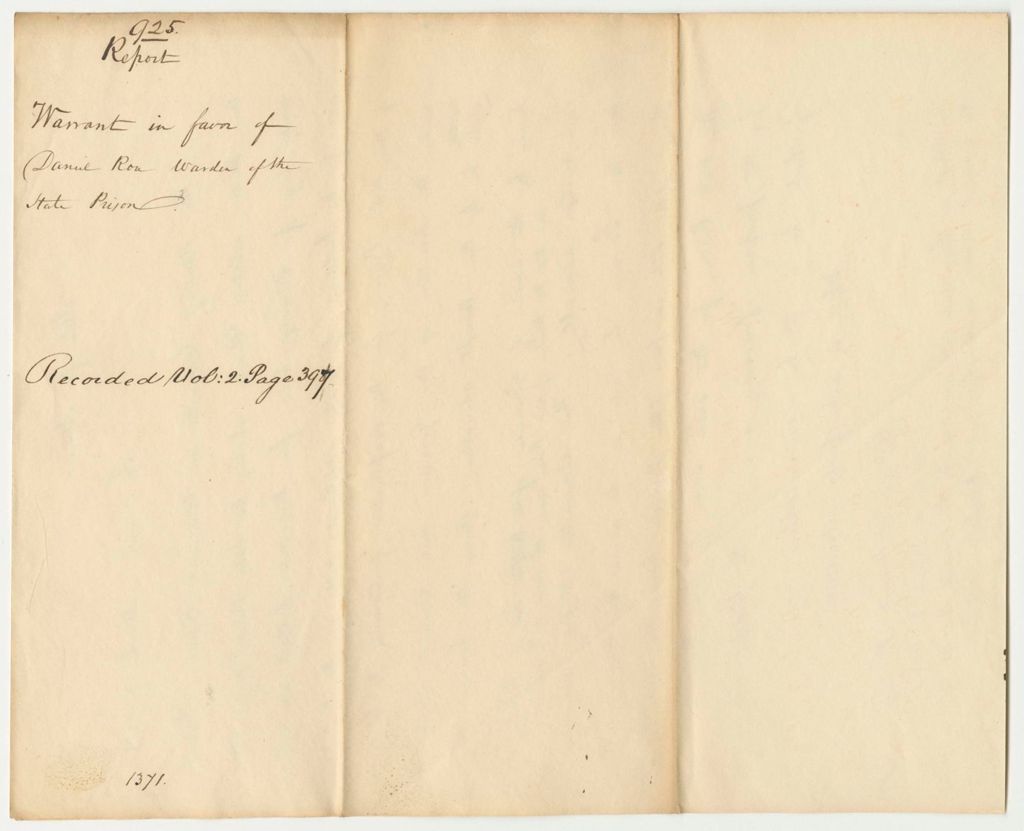 925.
Report
Warrant in favor of
Daniel Rose Warden of the
State Prison.
Recorded Vol: 2. Page 397
1371.